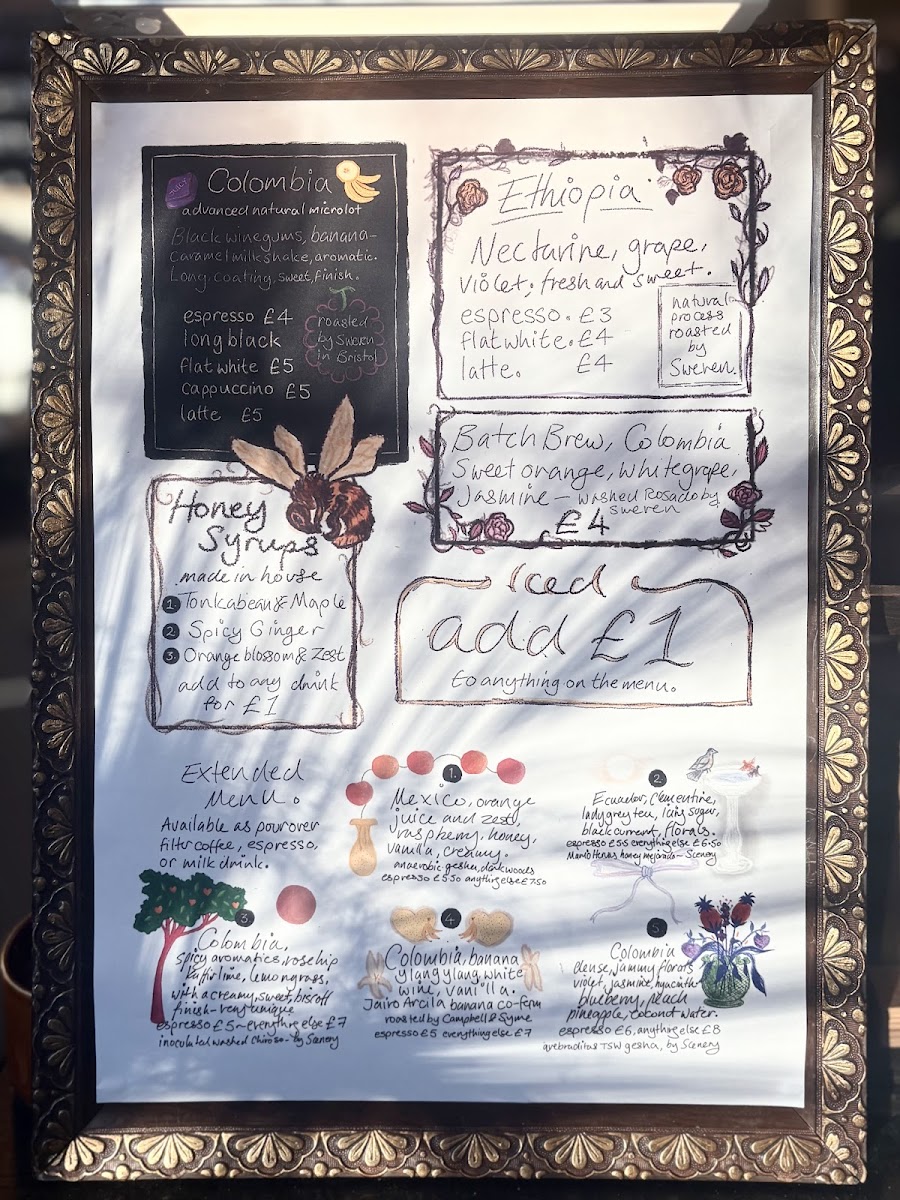 Colombia
advanced natural microlot
Black winegums, banana-
Caramel milkshake, aromatic.
Long, coating, sweet, finish.
espresso £4
long black
flat white £5
cappuccino £5
latte £5
roasted
by Sweven
in Bristol
Ethiopia
Nectarine, grape,
Violet, fresh and sweet.
espresso. £3
flat white. £4
latte. £4
natural
process
roasted
by
Sweven.
Batch Brew, Colombia
Sweet orange, white grape,
Jasmine - washed Rosado by
sweven
£4
Honey
Syrups
made in house
1. Tonkabean & Maple
2. Spicy Ginger
3. Orange blossom & Zest
add to any drink
for £1
Iced
add £1
to anything on the menu.
Extended
Menu.
Available as pourover
filter coffee, espresso,
or milk drink.
1.
Mexico, orange
juice and zest,
raspberry, honey,
vanilla, creamy.
anaerobic gesha, darkwoods
espresso £5.50 anything else £7.50
2.
Ecuador, Clementine,
lady grey tea, icing sugar,
blackcurrent, florals.
espresso £5.5 everything else £6.50
honey mejorado - Scenery
3.
Colombia,
spicy aromatics, rosehip
Kaffir lime, lemongrass,
with a creamy, sweet, biscoff
finish - very unique
espresso £5 - everything else £7
inoculated washed Chiroso - by Scenery
4
Colombia, banana
ylang ylang, white
wine, vanilla.
Jairo Arcila banana co-ferm
roasted by Campbell & Syme
espresso £5 everything else £7
5
Colombia
dense, jammy florals
violet, jasmine, hyacinth
blueberry, peach
pineapple, coconut water.
espresso £6, anything else £8
TSW gesha, by Scenery